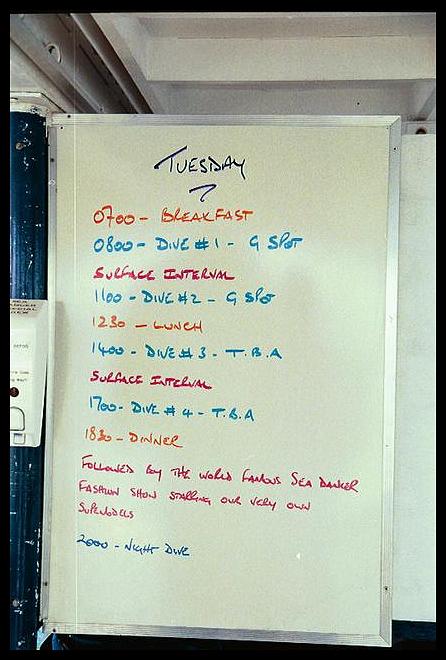 TUESDAY
0700 - BREAKFAST
0800 - DIVE #1 - G SPOT
SURFACE INTERVAL
1100 - DIVE #2 - G SPOT
1230 - LUNCH
1400 - DIVE #3 - T.B.A
SURFACE INTERVAL
1700 - DIVE #4 - T.B.A
1830 - DINNER
FOLLOWED BY THE WORLD FAMOUS SEA DANCER
FASHION SHOW STARRING OUR VERY OWN
SUPERMODELS
2000 - NIGHT DIVE